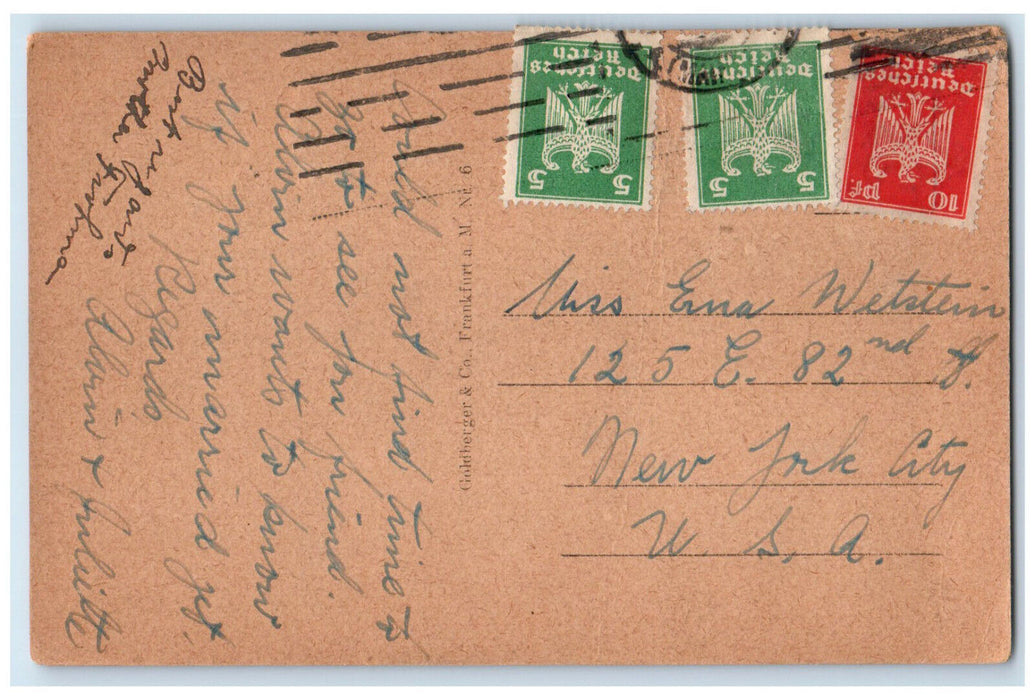 Could not find time to
go to see you friend.
Alvin wants to know
if your married yet.
Regards
Alvin & Juliette
Best regards
Goldberger & Co., Frankfurt a. M. Nr. 6
Deutsches
Reich
5 5
Deutsches
Reich
5 5
Deutsches
Reich
10 Pf
Miss Ena Wetstein
125 E. 82nd St.
New York City
U. S. A.